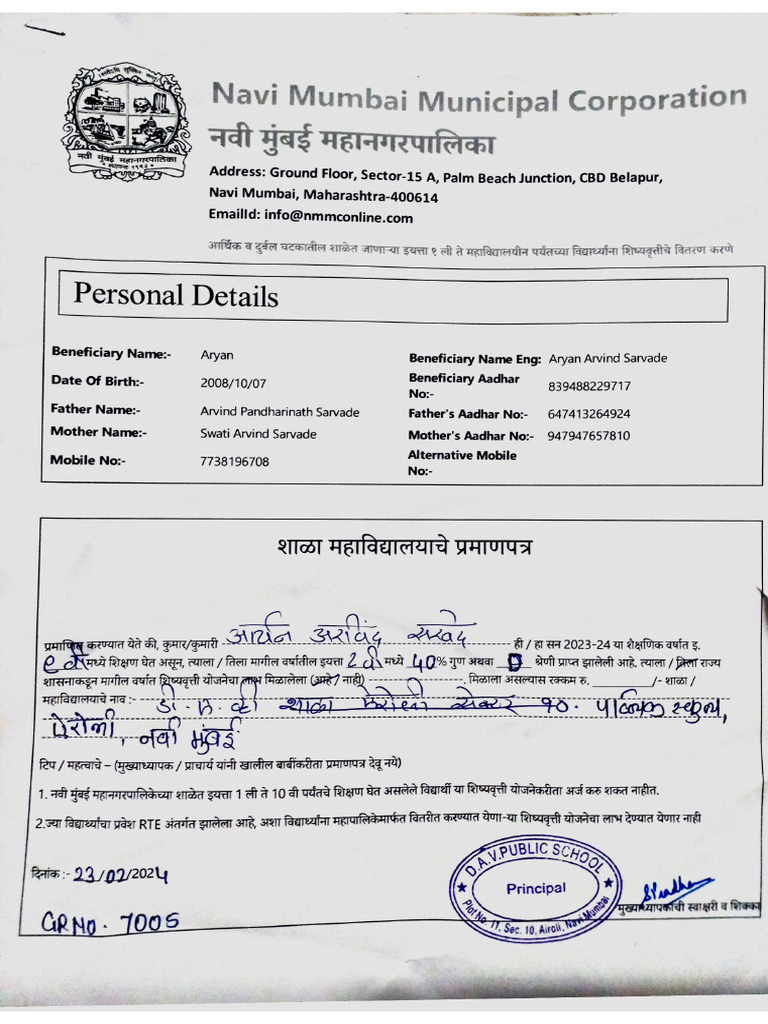 नवी मुंबई महानगरपालिका
Navi Mumbai Municipal Corporation
नवी मुंबई महानगरपालिका
Address: Ground Floor, Sector-15 A, Palm Beach Junction, CBD Belapur,
Navi Mumbai, Maharashtra-400614
EmailId: info@nmmconline.com
आर्थिक व दुर्बल घटकातील शाळेत जाणाऱ्या इयत्ता १ ली ते महाविद्यालयीन पर्यंतच्या विद्यार्थ्यांना शिष्यवृत्तीचे वितरण करणे
Personal Details
Beneficiary Name:- Aryan Beneficiary Name Eng: Aryan Arvind Sarvade
Date Of Birth:- 2008/10/07 Beneficiary Aadhar No:- 839488229717
Father Name:- Arvind Pandharinath Sarvade Father's Aadhar No:- 647413264924
Mother Name:- Swati Arvind Sarvade Mother's Aadhar No:- 947947657810
Mobile No:- 7738196708 Alternative Mobile No:-
शाळा महाविद्यालयाचे प्रमाणपत्र
प्रमाणित करण्यात येते की, कुमार/कुमारी आर्यन अरविंद सरवदे ही / हा सन 2023-24 या शैक्षणिक वर्षात इ.
मध्ये शिक्षण घेत असून, त्याला / तिला मागील वर्षातील इयत्ता मध्ये 40% गुण अथवा D श्रेणी प्राप्त झालेली आहे. त्याला / तिला राज्य
शासनाकडून मागील वर्षात शिष्यवृत्ती योजनेचा लाभ मिळालेला (आहे / नाही) मिळाला असल्यास रक्कम रु. /- शाळा /
महाविद्यालयाचे नाव :- डी. ए. व्ही शाळा ऐरोली सेक्टर १०. पब्लिक स्कुल,
ऐरोली, नवी मुंबई
टिप / महत्वाचे – (मुख्याध्यापक / प्राचार्य यांनी खालील बाबींकरीता प्रमाणपत्र देवू नये)
1. नवी मुंबई महानगरपालिकेच्या शाळेत इयत्ता 1 ली ते 10 वी पर्यंतचे शिक्षण घेत असलेले विद्यार्थी या शिष्यवृत्ती योजनेकरीता अर्ज करु शकत नाहीत.
2.ज्या विद्यार्थ्यांचा प्रवेश RTE अंतर्गत झालेला आहे, अशा विद्यार्थ्यांना महापालिकेमार्फत वितरीत करण्यात येणा-या शिष्यवृत्ती योजनेचा लाभ देण्यात येणार नाही
दिनांक :- 23/02/2024
D.A.V.PUBLIC SCHOOL
Principal
Plot No. 11, Sec. 10, Airoli, Navi Mumbai
मुख्याध्यापकांची स्वाक्षरी व शिक्का
GR NO. 7005